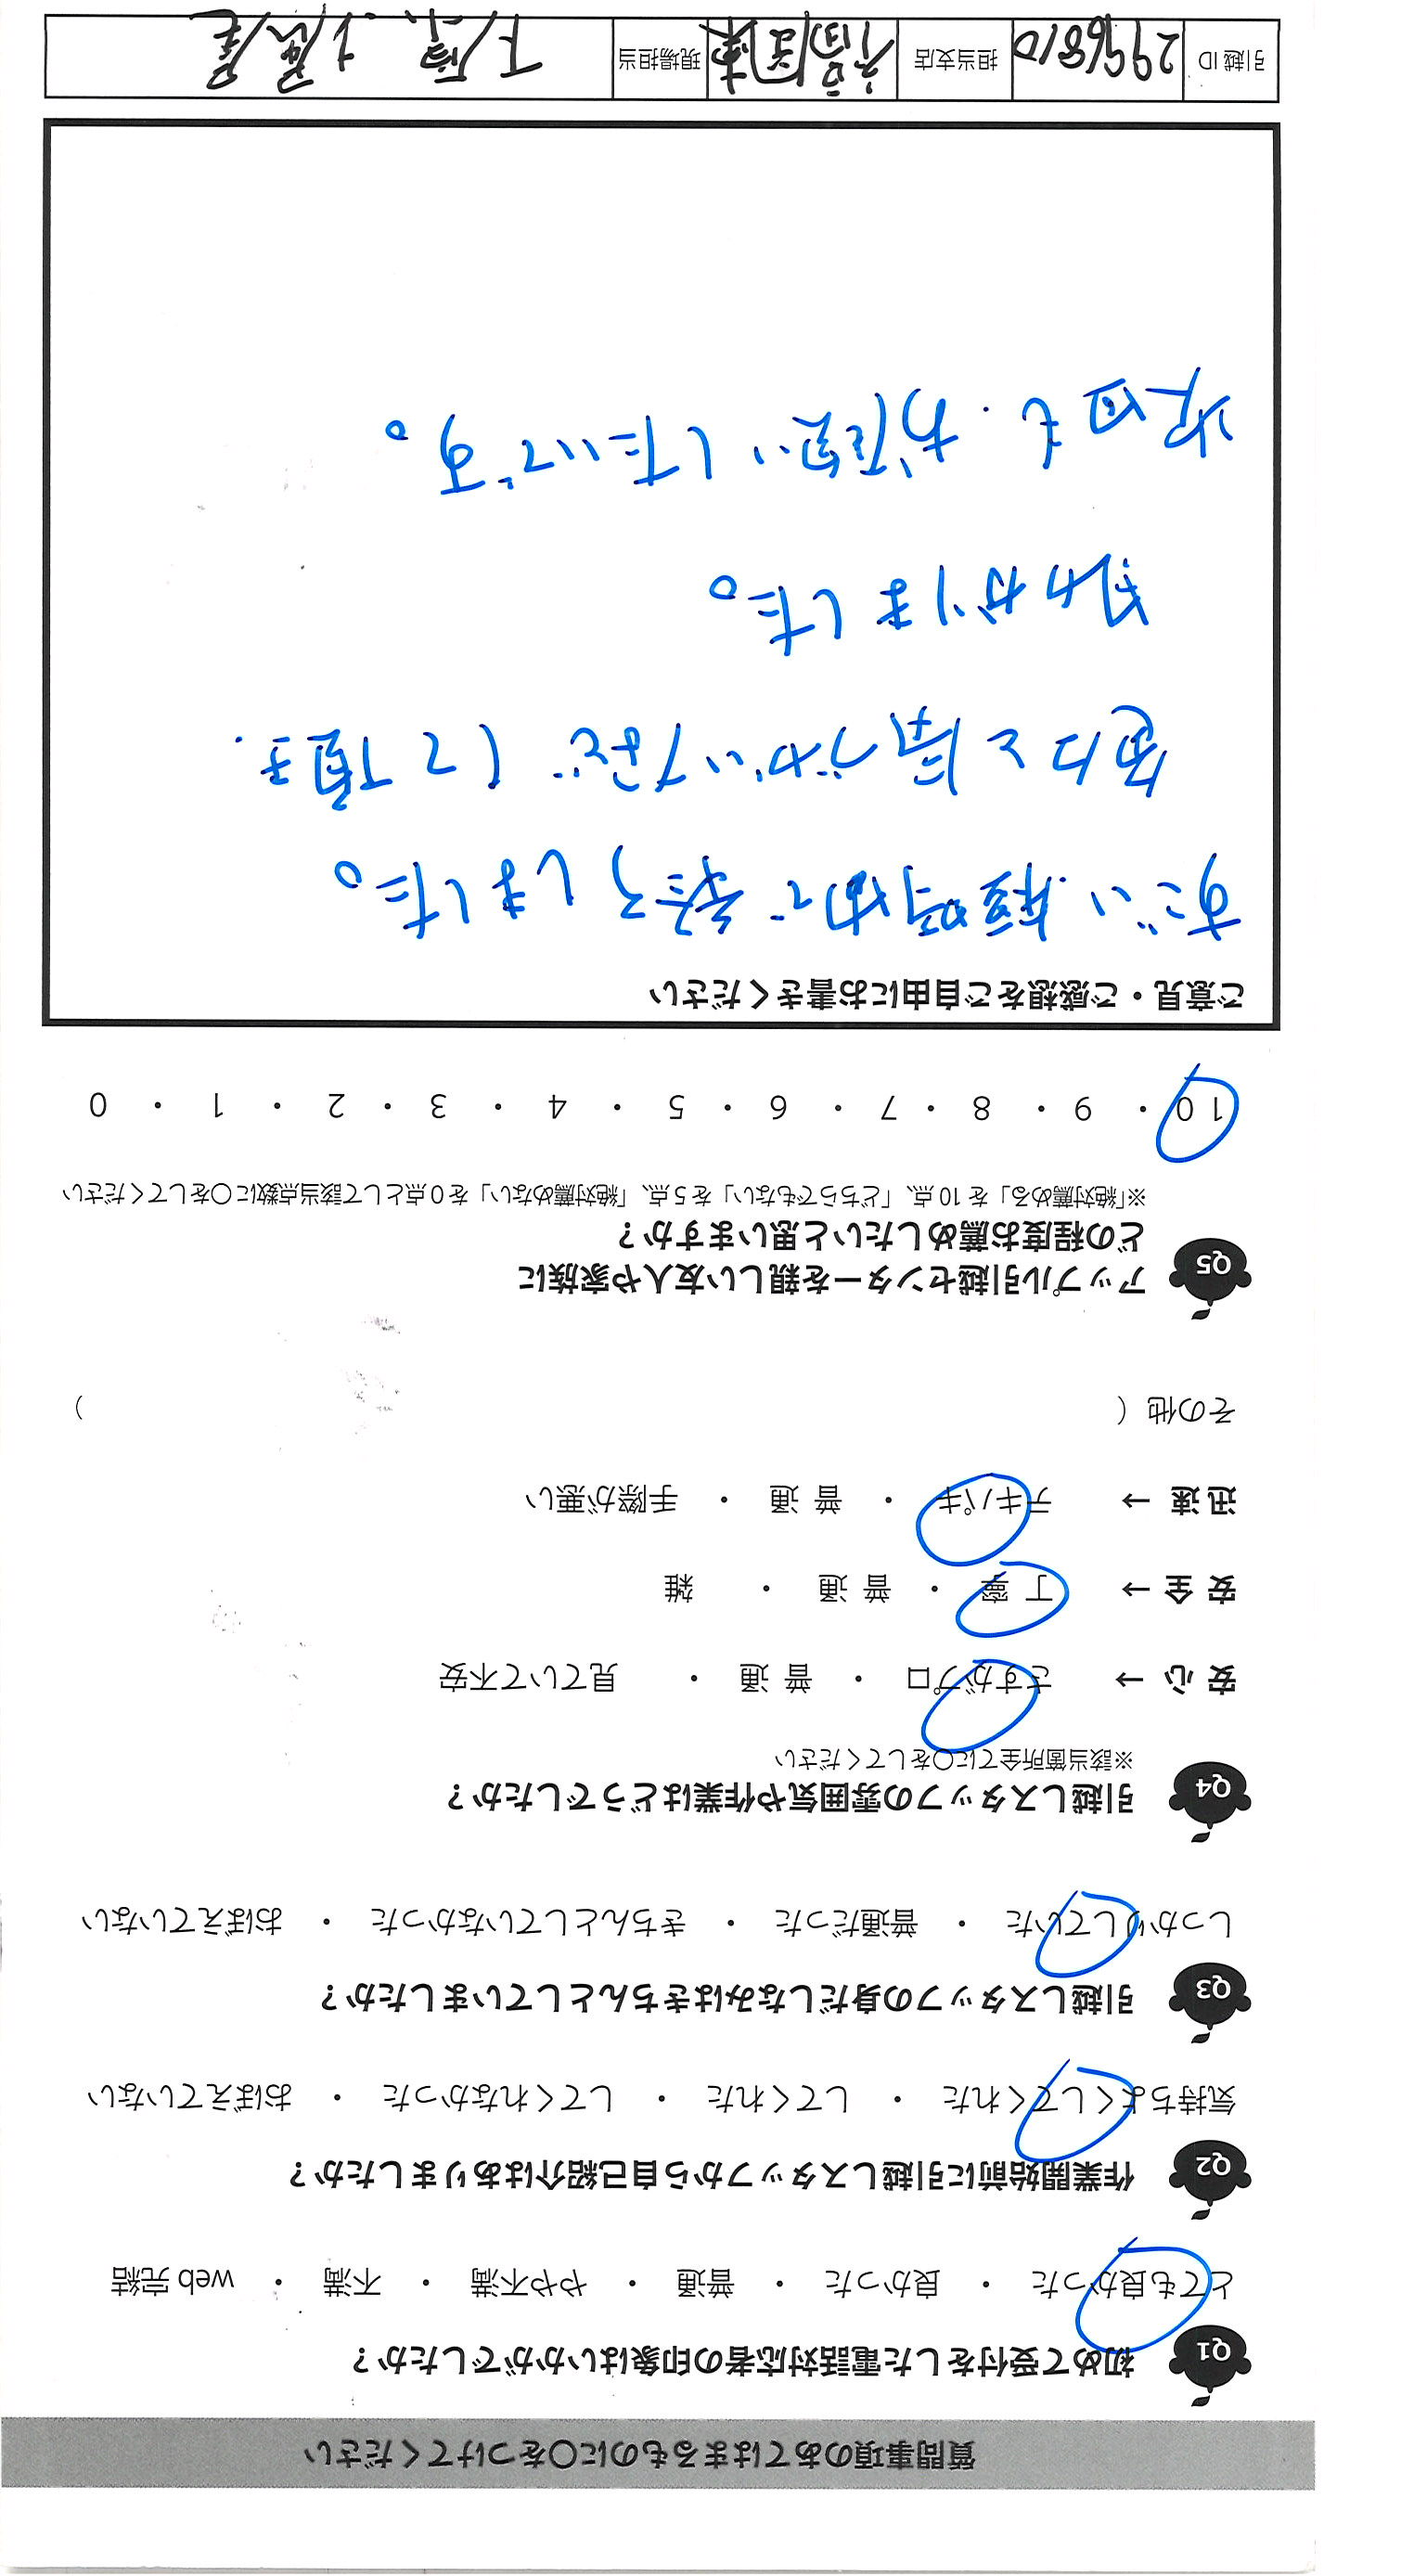 質問事項のあてはまるものに○をつけてください
Q1 初めて受付をした電話対応者の印象はいかがでしたか？
とても良かった ・ 良かった ・ 普通 ・ やや不満 ・ 不満 ・ web 完結
Q2 作業開始前に引越しスタッフから自己紹介はありましたか？
気持ちよくしてくれた ・ してくれた ・ してくれなかった ・ おぼえていない
Q3 引越しスタッフの身だしなみはきちんとしていましたか？
しっかりしていた ・ 普通だった ・ きちんとしていなかった ・ おぼえていない
Q4 引越しスタッフの雰囲気や作業はどうでしたか？
※該当箇所全てに○をしてください
安 心 → さすがプロ ・ 普 通 ・ 見ていて不安
安 全 → 丁 寧 ・ 普 通 ・ 雑
迅 速 → テキパキ ・ 普 通 ・ 手際が悪い
その他（ ）
Q5 アップル引越センターを親しい友人や家族に
どの程度お薦めしたいと思いますか？
※「絶対薦める」を 10 点、「どちらでもない」を 5 点、「絶対薦めない」を 0 点として該当点数に○をしてください
10 ・ 9 ・ 8 ・ 7 ・ 6 ・ 5 ・ 4 ・ 3 ・ 2 ・ 1 ・ 0
ご意見・ご感想をご自由にお書きください
すごい短時間で終了しました。
色々と気づかいなどして頂き、
助かりました。
次回も、お願いしたいです。
引越 ID 2996810 担当支店 福岡東 現場担当 下原、土屋